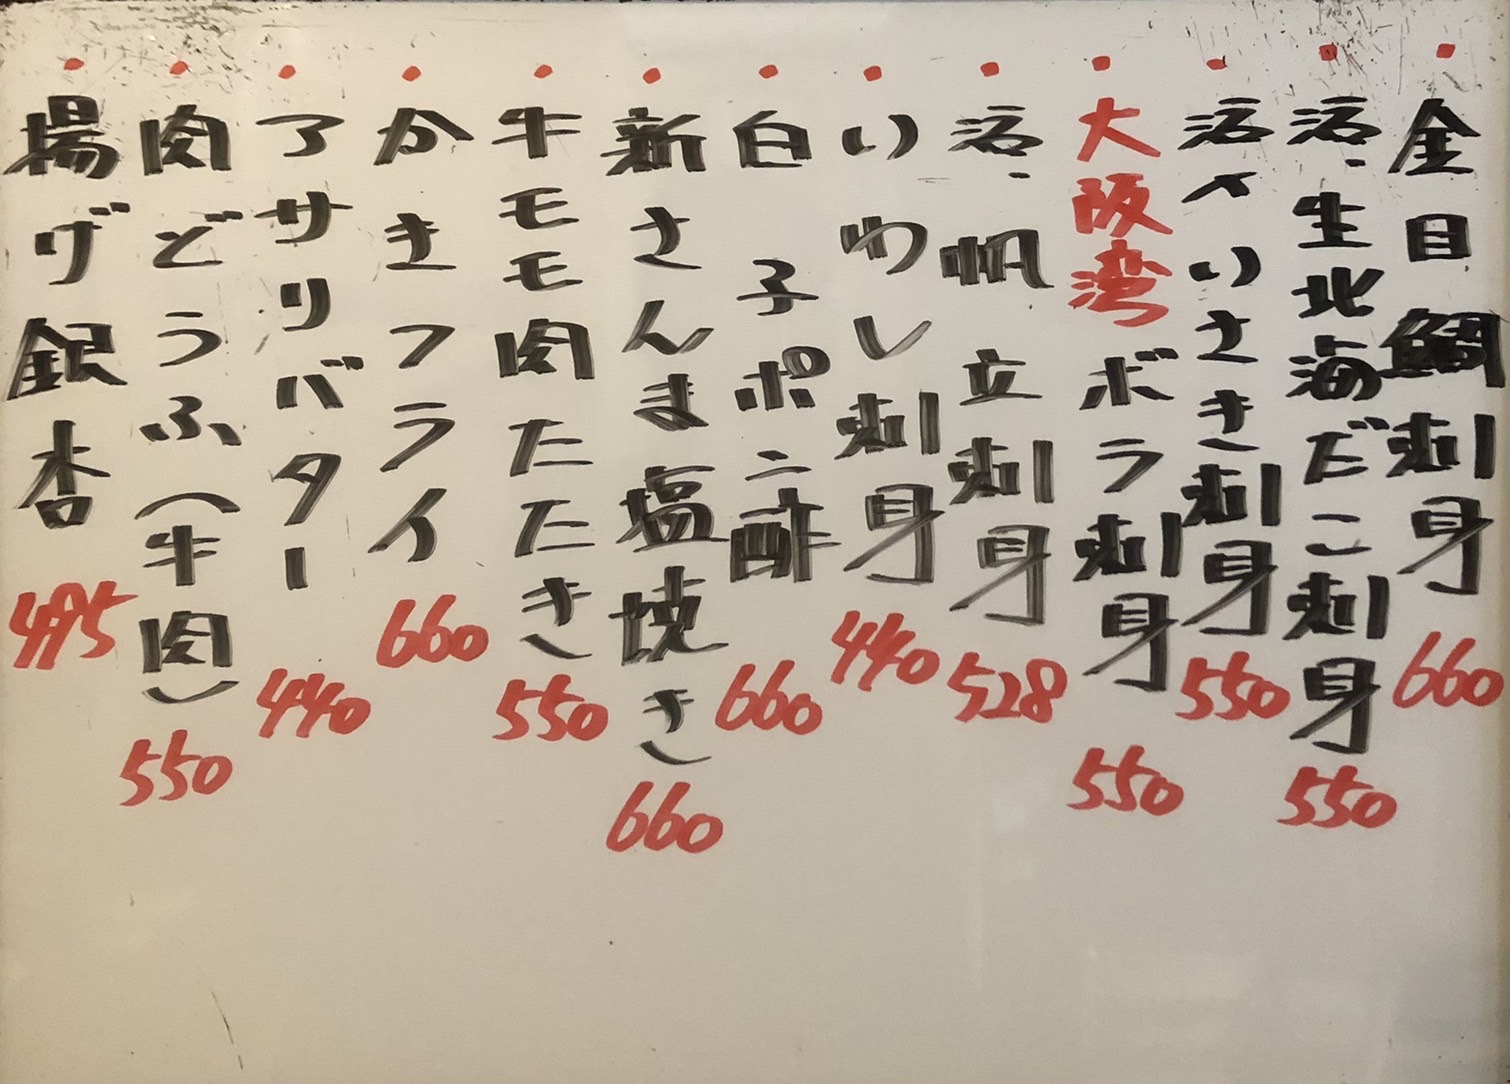 ・金目鯛刺身 660
・活、生北海だこ刺身 550
・活〆いさき刺身 550
・大阪湾ボラ刺身 550
・活、帆立刺身 528
・いわし刺身 440
・白子ポン酢 660
・新さんま塩焼き 660
・牛モモ肉たたき 550
・かきフライ 660
・アサリバター 440
・肉どうふ(牛肉) 550
・揚げ銀杏 495